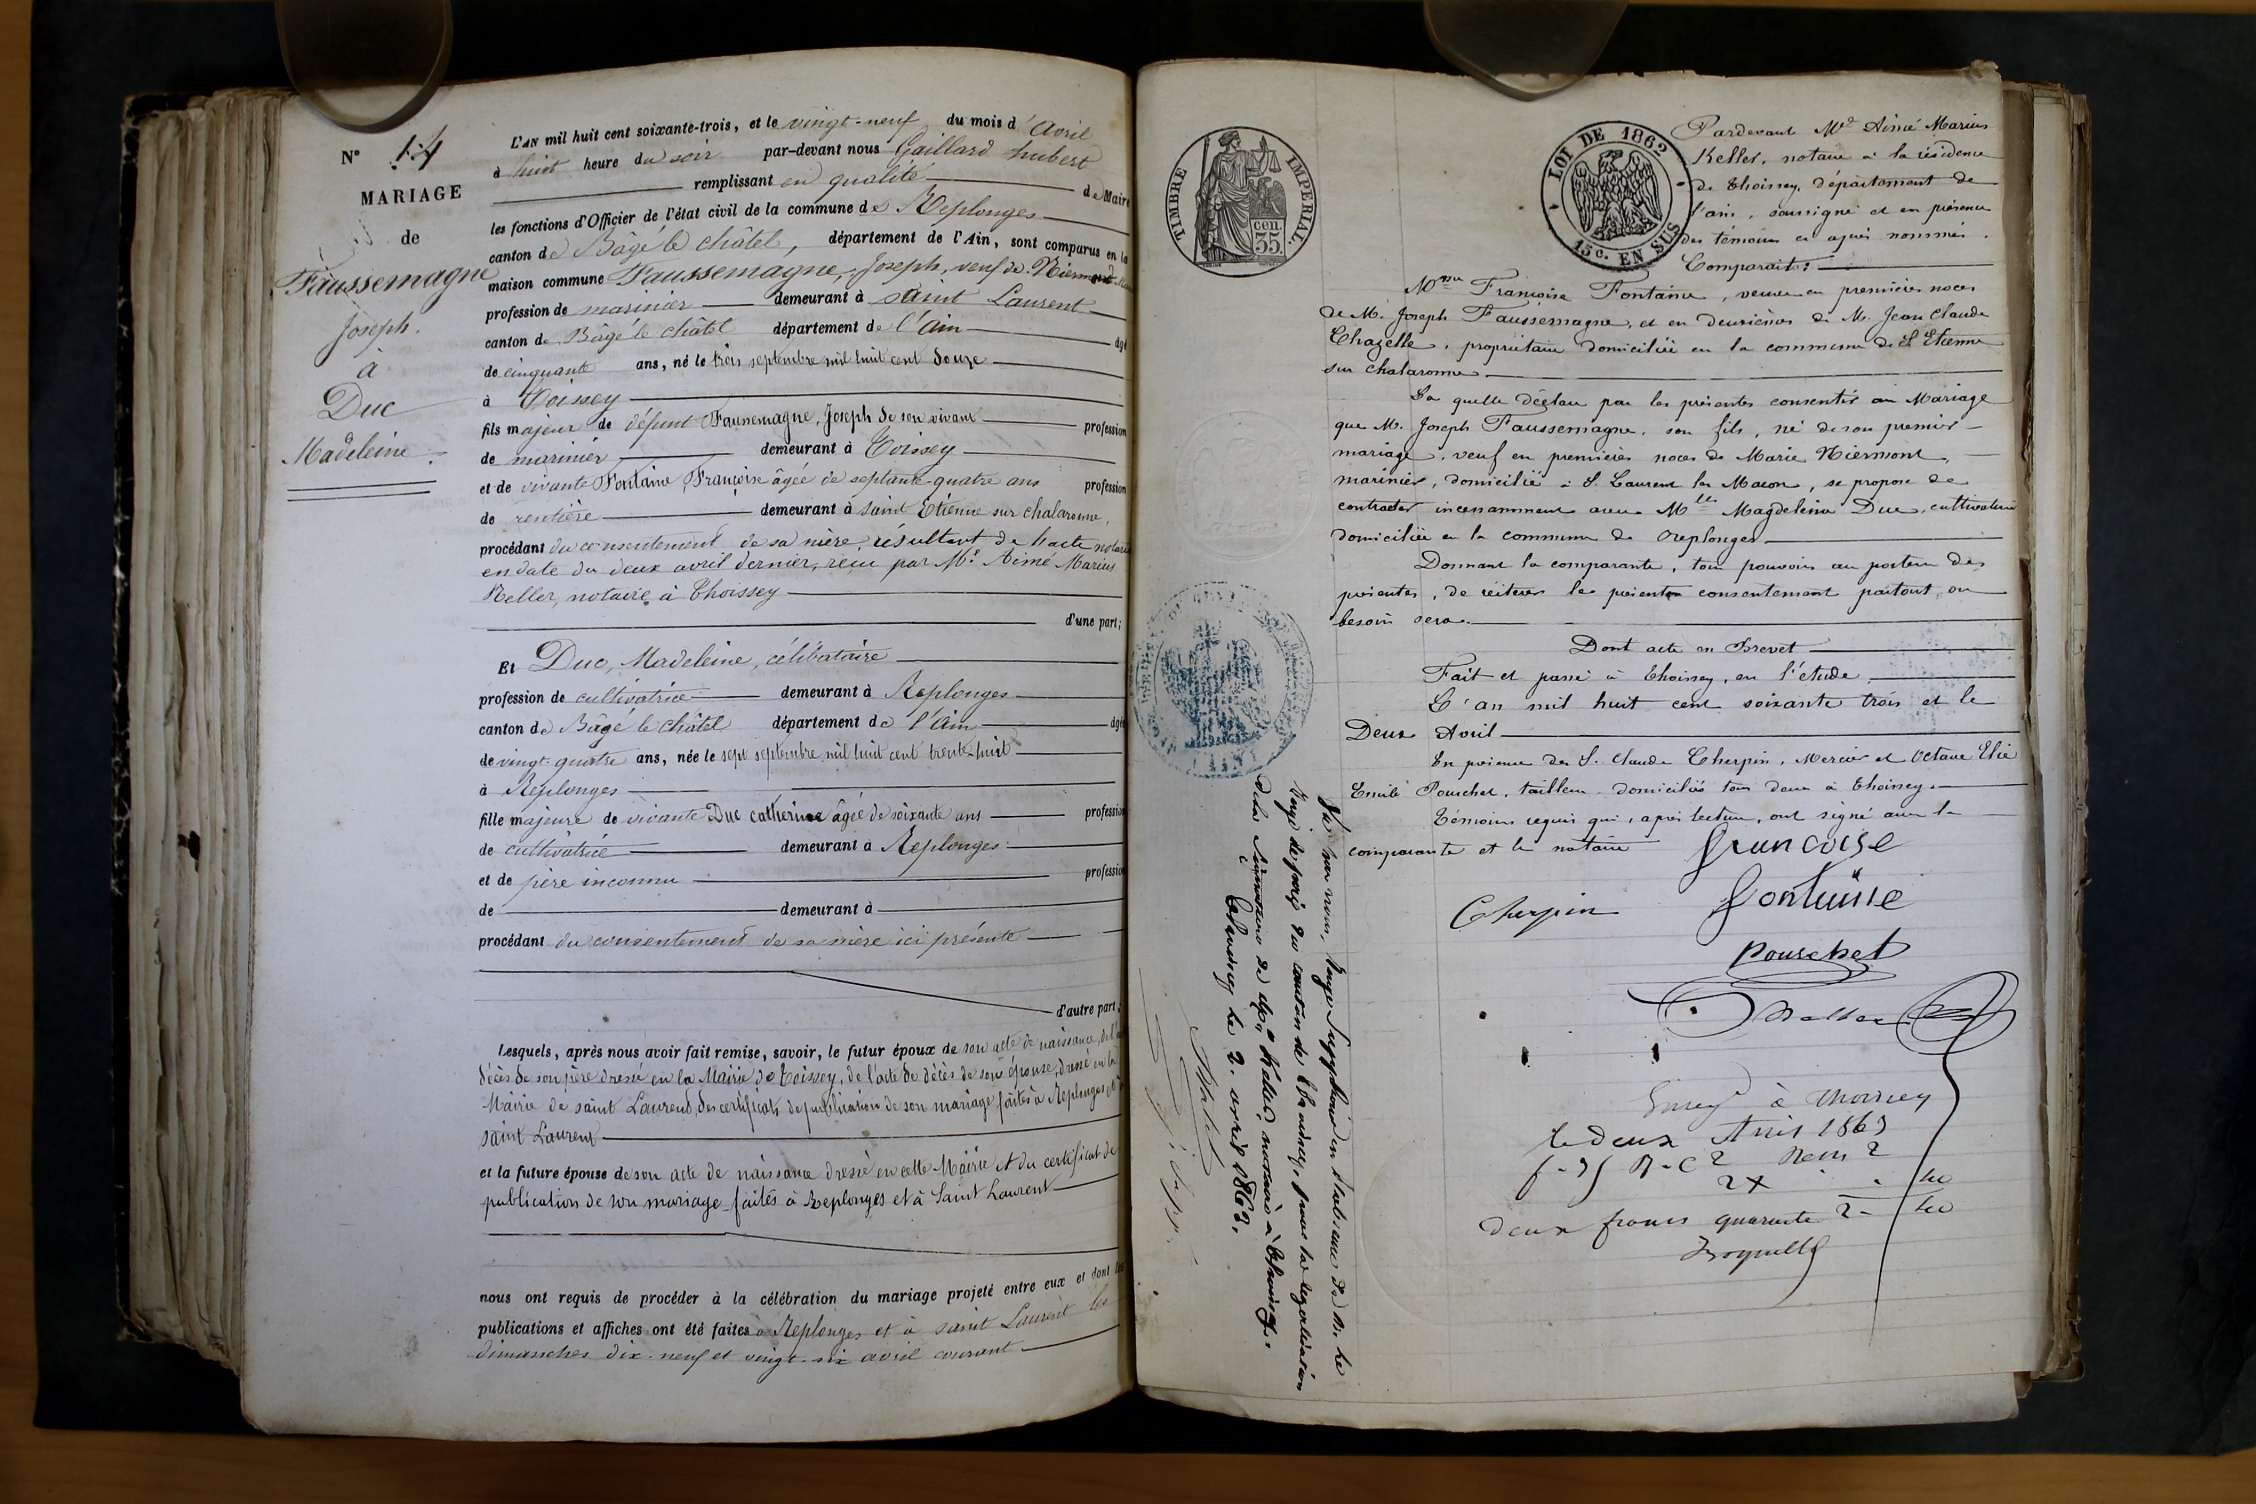 N° 14
MARIAGE
de
Faussemagne
Joseph.
à
Duc
Madeleine
L'AN mil huit cent soixante-trois, et le vingt-neuf du mois d'Avril
à huit heure du soir par-devant nous Gaillard hubert
remplissant en qualité de Maire
les fonctions d'Officier de l'état civil de la commune de Replonges
canton de Bâgé le châtel, département de l'Ain, sont comparus en la
maison commune Faussemagne, Joseph, veuf de Niermont
profession de marinier demeurant à saint Laurent
canton de Bâgé le châtel département de l'ain âgé
de cinquante ans, né le trois septembre mil huit cent douze
à Toissey
fils majeur de défunt Faussemagne, Joseph de son vivant profession
de marinier demeurant à Toissey
et de vivante Fontaine Françoise âgée de septante-quatre ans profession
de rentière demeurant à saint Etienne sur chalaronne,
procédant du consentement de sa mère, résultant de l'acte notarié
en date du deux avril dernier, reçu par Me. Aimé Marius
Keller, notaire à Thoissey
d'une part;
Et Duc, Madeleine, célibataire
profession de cultivatrice demeurant à Replonges
canton de Bâgé le châtel département de l'Ain âgée
de vingt-quatre ans, née le sept septembre mil huit cent trente-huit
à Replonges
fille majeure de vivante Duc catherine âgée de soixante ans profession
de cultivatrice demeurant à Replonges
et de père inconnu profession
de demeurant à
procédant du consentement de sa mère ici présente
d'autre part;
Lesquels, après nous avoir fait remise, savoir, le futur époux de son acte de naissance, de l'
décès de son père dressé en la Mairie de Toissey, de l'acte de décès de son épouse, dressé en la
Mairie de saint Laurent, des certificats de publication de son mariage faites à Replonges et à
saint Laurent
et la future épouse de son acte de naissance dressé en cette Mairie et du certificat de
publication de son mariage faites à Replonges et à Saint Laurent
nous ont requis de procéder à la célébration du mariage projeté entre eux et dont les
publications et affiches ont été faites à Replonges et à saint Laurent les
dimanches dix-neuf et vingt-six avril courant
TIMBRE IMPERIAL.
35 cen.
LOI DE 1862
15c. EN SUS
Pardevant Me Aimé Marius
Keller, notaire à la résidence
de Thoissey, département de
l'ain, soussigné et en présence
des témoins ci après nommés.
Comparait:
Mme Françoise Fontaine, veuve en premières noces
de M. Joseph Faussemagne, et en deuxièmes de M. Jean Claude
Chazelle, propriétaire domiciliée en la commune de St Etienne
sur Chalaronne
La quelle déclare par les présentes consentir au Mariage
que M. Joseph Faussemagne, son fils, né de son premier
mariage, veuf en premières noces de Marie Niermont,
marinier, domicilié à St. Laurent les Macon, se propose de
contracter incessamment avec Mlle Magdeleine Duc, cultivatrice
domiciliée en la commune de Replonges
Donnant la comparante, tous pouvoirs au porteur des
présentes, de réitérer le présent consentement partout où
besoin sera.
Dont acte en Brevet
Fait et passé à Thoissey, en l'étude
L'an mil huit cent soixante trois et le
Deux Avril
En présence des S. Claude Cherpin, Mercier et Octave Elie
Emile Pouschet, tailleur domiciliés tous deux à Thoissey.
Témoins requis qui, après lecture, ont signé avec la
comparante et le notaire
francoise
fontaine
Cherpin
Pouschet
Keller
Enregé à Thoissey
le deux Avril 1863
Deux francs quarante
Vu par nous, Juge Suppléant en l'absence de M. le
Juge de paix du canton de Thoissey, pour la légalisation
de la signature de Me. Keller, notaire à Thoissey.
Thoissey le 2. avril 1863.